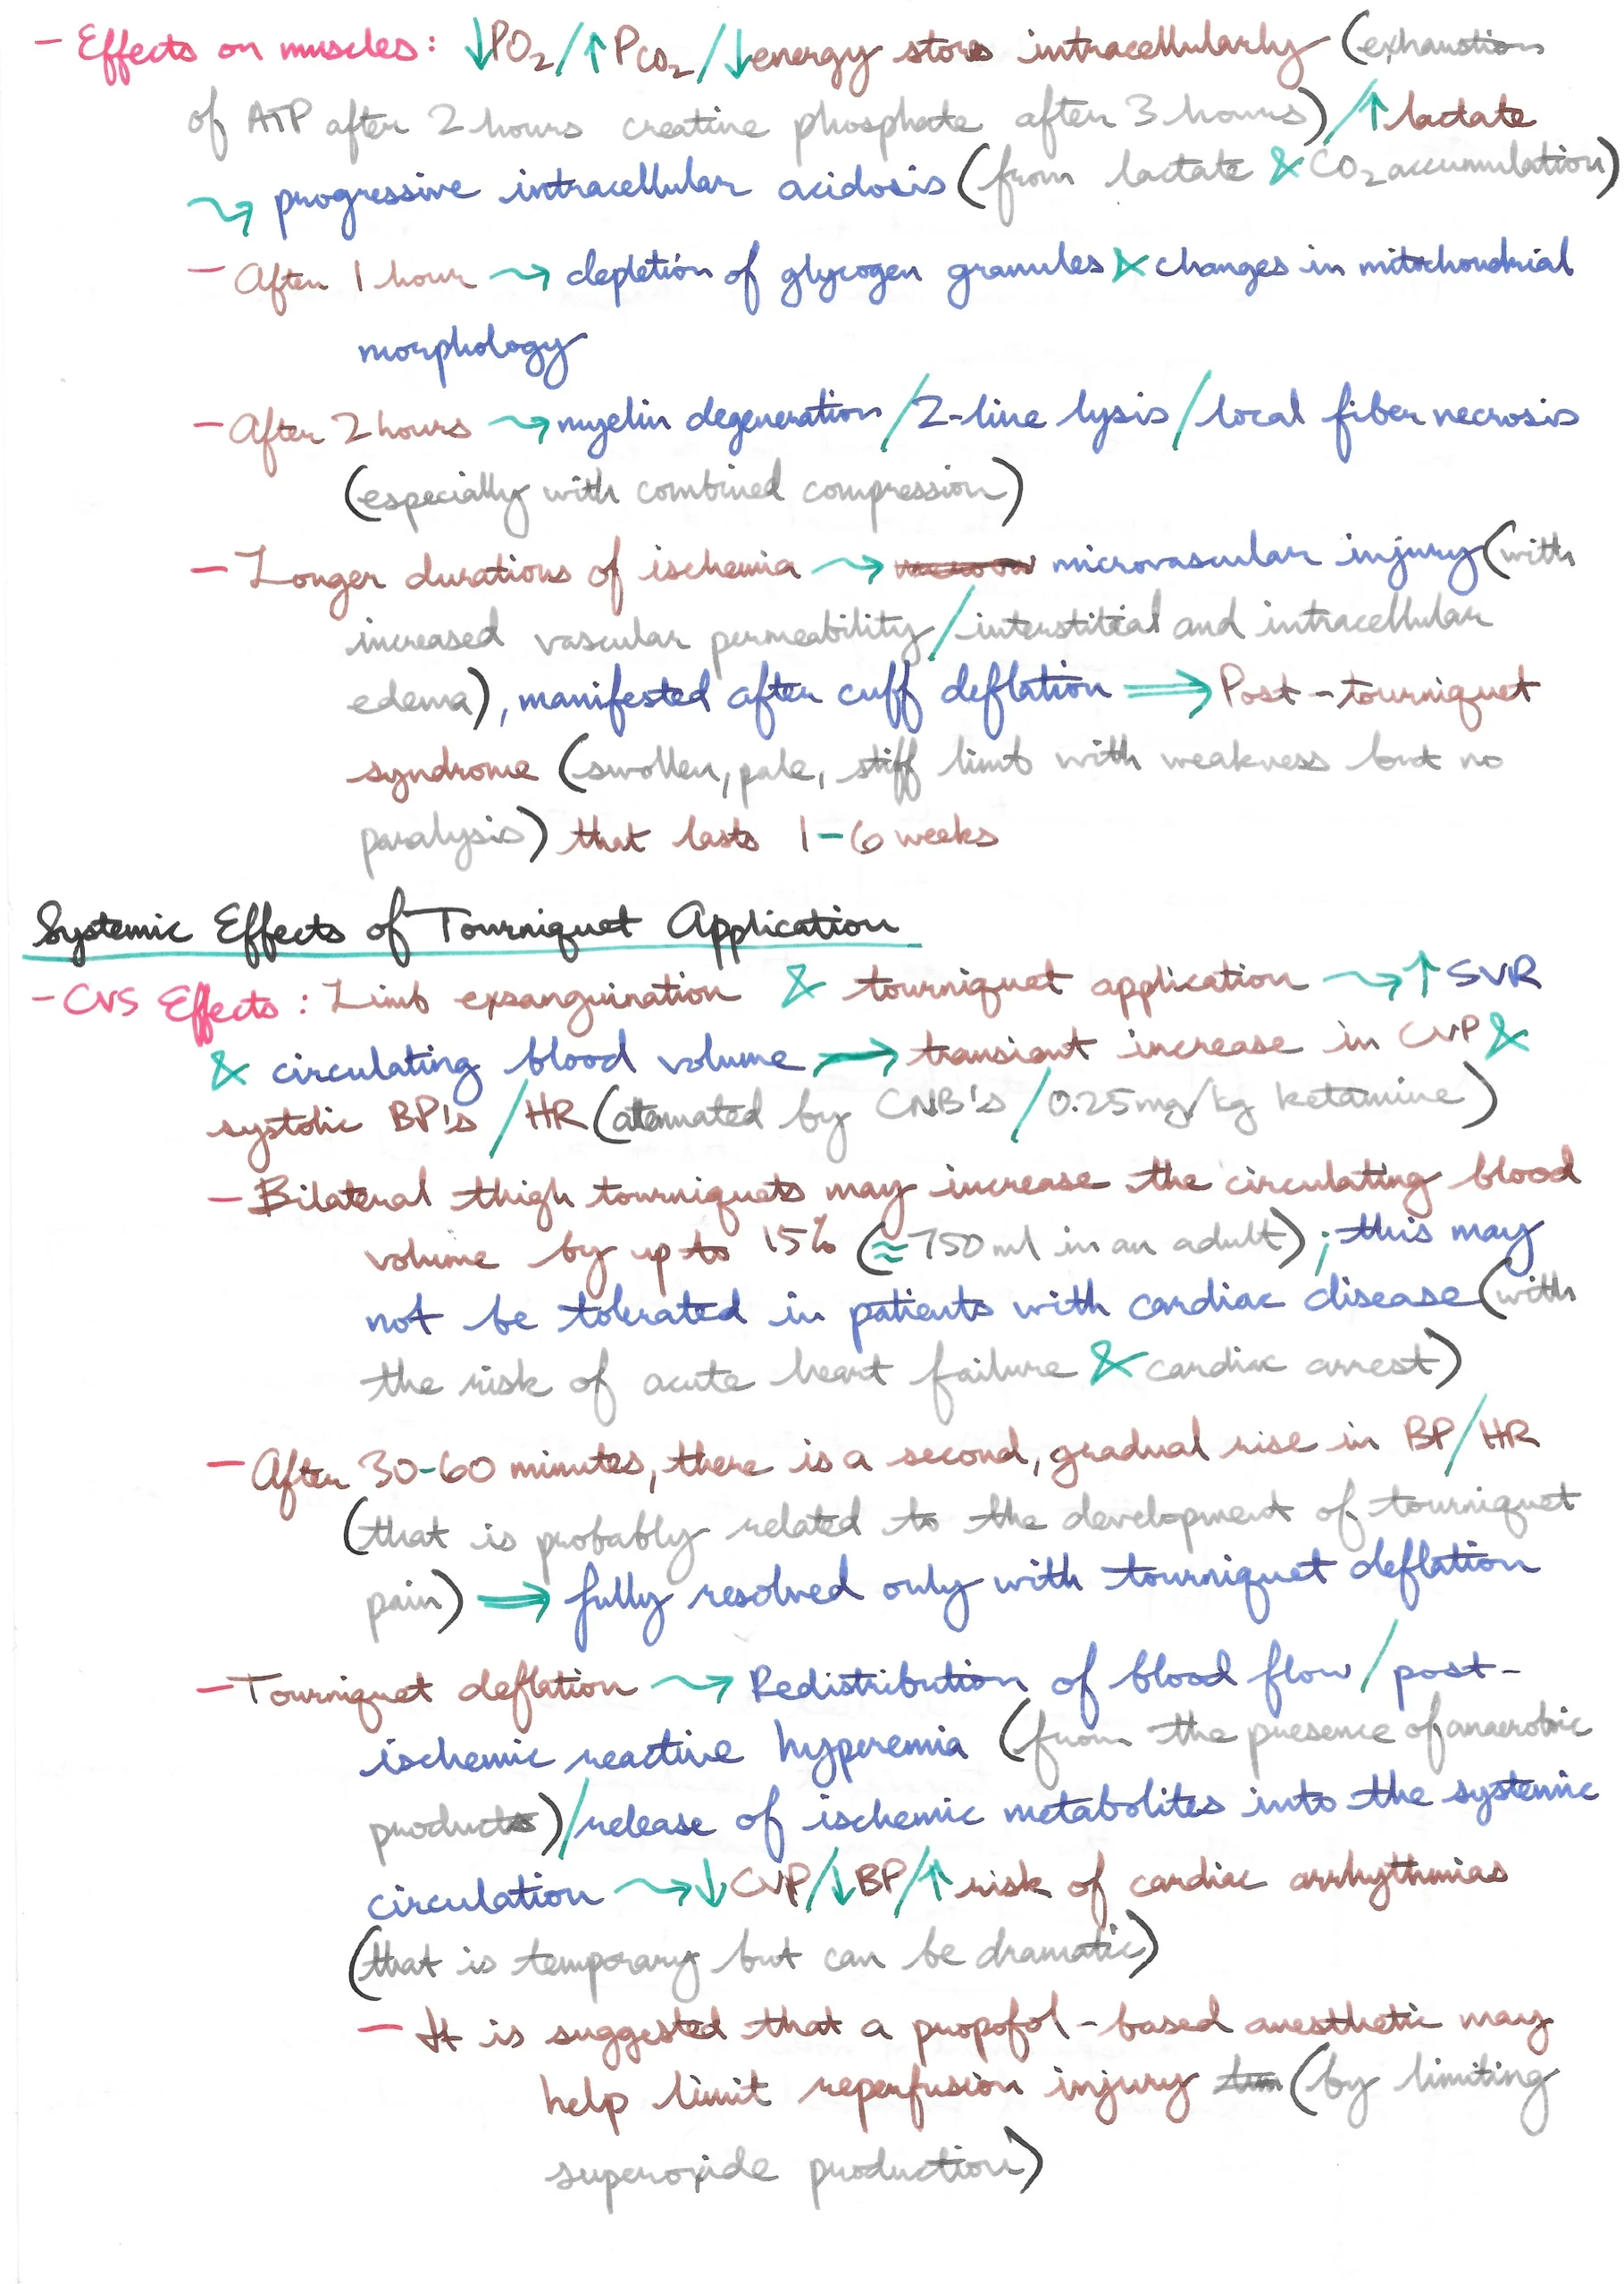 - Effects on muscles: ↓PO₂/↑PCO₂/↓energy stores intracellularly (exhaustion
of ATP after 2 hours creatine phosphate after 3 hours)/↑lactate
⇝ progressive intracellular acidosis (from lactate & CO₂ accumulation)
- After 1 hour ⇝ depletion of glycogen granules & changes in mitochondrial
morphology
- After 2 hours ⇝ myelin degeneration/Z-line lysis/local fiber necrosis
(especially with combined compression)
- Longer durations of ischemia ⇝ microvascular injury (with
increased vascular permeability/interstitial and intracellular
edema), manifested after cuff deflation ⟹ Post-tourniquet
syndrome (swollen, pale, stiff limb with weakness but no
paralysis) that lasts 1-6 weeks
Systemic Effects of Tourniquet Application
- CVS Effects: Limb exsanguination & tourniquet application ⇝ ↑ SVR
& circulating blood volume → transient increase in CVP &
systolic BP's/HR (attenuated by CNB's/0.25mg/kg ketamine)
- Bilateral thigh tourniquets may increase the circulating blood
volume by up to 15% (≈750ml in an adult); this may
not be tolerated in patients with cardiac disease (with
the risk of acute heart failure & cardiac arrest)
- After 30-60 minutes, there is a second, gradual rise in BP/HR
(that is probably related to the development of tourniquet
pain) ⟹ fully resolved only with tourniquet deflation
- Tourniquet deflation ⇝ Redistribution of blood flow/post-
ischemic reactive hyperemia (from the presence of anaerobic
products)/release of ischemic metabolites into the systemic
circulation ⇝ ↓CVP/↓BP/↑risk of cardiac arrhythmias
(that is temporary but can be dramatic)
- It is suggested that a propofol-based anesthetic may
help limit reperfusion injury (by limiting
superoxide production)